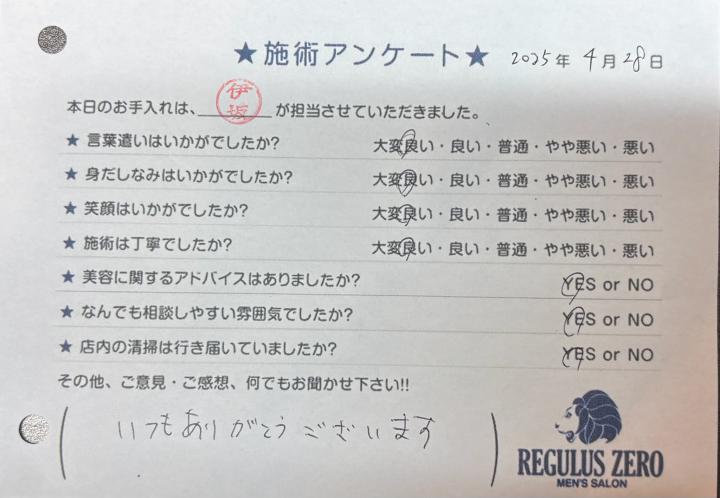 ★施術アンケート★ 2025年 4月28日
本日のお手入れは、伊坂が担当させていただきました。
★ 言葉遣いはいかがでしたか? 大変良い・良い・普通・やや悪い・悪い
★ 身だしなみはいかがでしたか? 大変良い・良い・普通・やや悪い・悪い
★ 笑顔はいかがでしたか? 大変良い・良い・普通・やや悪い・悪い
★ 施術は丁寧でしたか? 大変良い・良い・普通・やや悪い・悪い
★ 美容に関するアドバイスはありましたか? YES or NO
★ なんでも相談しやすい雰囲気でしたか? YES or NO
★ 店内の清掃は行き届いていましたか? YES or NO
その他、ご意見・ご感想、何でもお聞かせ下さい!!
(いつもありがとうございます)
REGULUS ZERO
MEN'S SALON